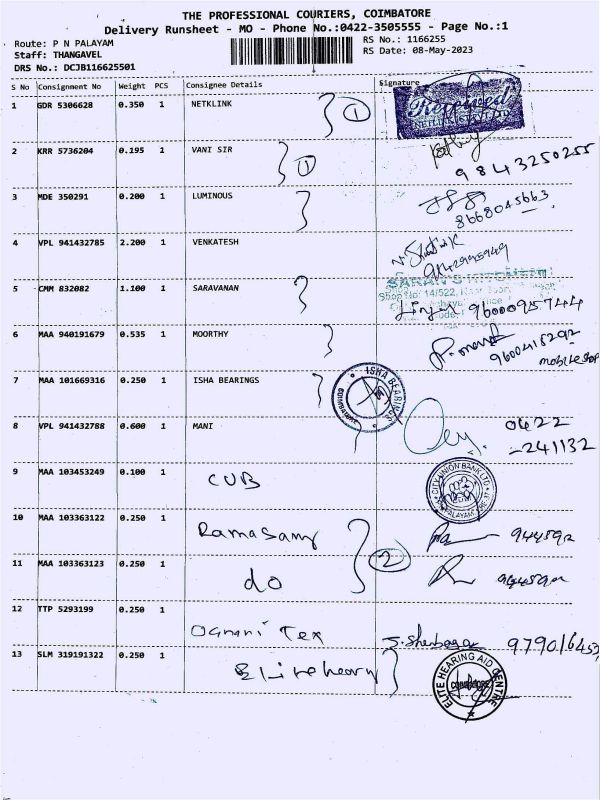 THE PROFESSIONAL COURIERS, COIMBATORE
Delivery Runsheet - MO - Phone No.:0422-3505555 - Page No.:1
Route: P N PALAYAM
RS No.: 1166255
Staff: THANGAVEL
RS Date: 08-May-2023
DRS No.: DCJB116625501
S No Consignment No Weight PCS Consignee Details Signature
1 GDR 5306628 0.350 1 NETKLINK 1 Received
2 KRR 5736204 0.195 1 VANI SIR 1 9843250255
3 MDE 350291 0.200 1 LUMINOUS 8668045663
4 VPL 941432785 2.200 1 VENKATESH
5 CMM 832082 1.100 1 SARAVANAN 9600095744
6 MAA 940191679 0.535 1 MOORTHY
mobile shop
7 MAA 101669316 0.250 1 ISHA BEARINGS ISHA BEARINGS COIMBATORE
8 VPL 941432788 0.600 1 MANI 0422
-241132
9 MAA 103453249 0.100 1 CUB CITY UNION BANK LTD
10 MAA 103363122 0.250 1 Ramasamy 2
11 MAA 103363123 0.250 1 do
12 TTP 5293199 0.250 1 Tex
13 SLM 319191322 0.250 1 ELITE HEARING AID CENTRE COIMBATORE